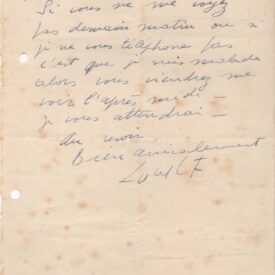 Si vous ne me voyez
pas demain matin ou si
je ne vous téléphone pas
c'est que je suis malade
alors vous viendrez me
voir l'après midi —
je vous attendrai —
Au revoir
Bien amicalement